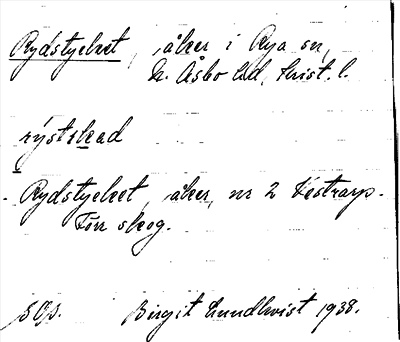 Rydstycket, åker i Rya sn,
N. Åsbo hd, Krist. l.
rýstskad
Rydstycket, åker, nr 2 Västrarp.
Förr skog.
S Og. Birgit Lundkvist 1938.